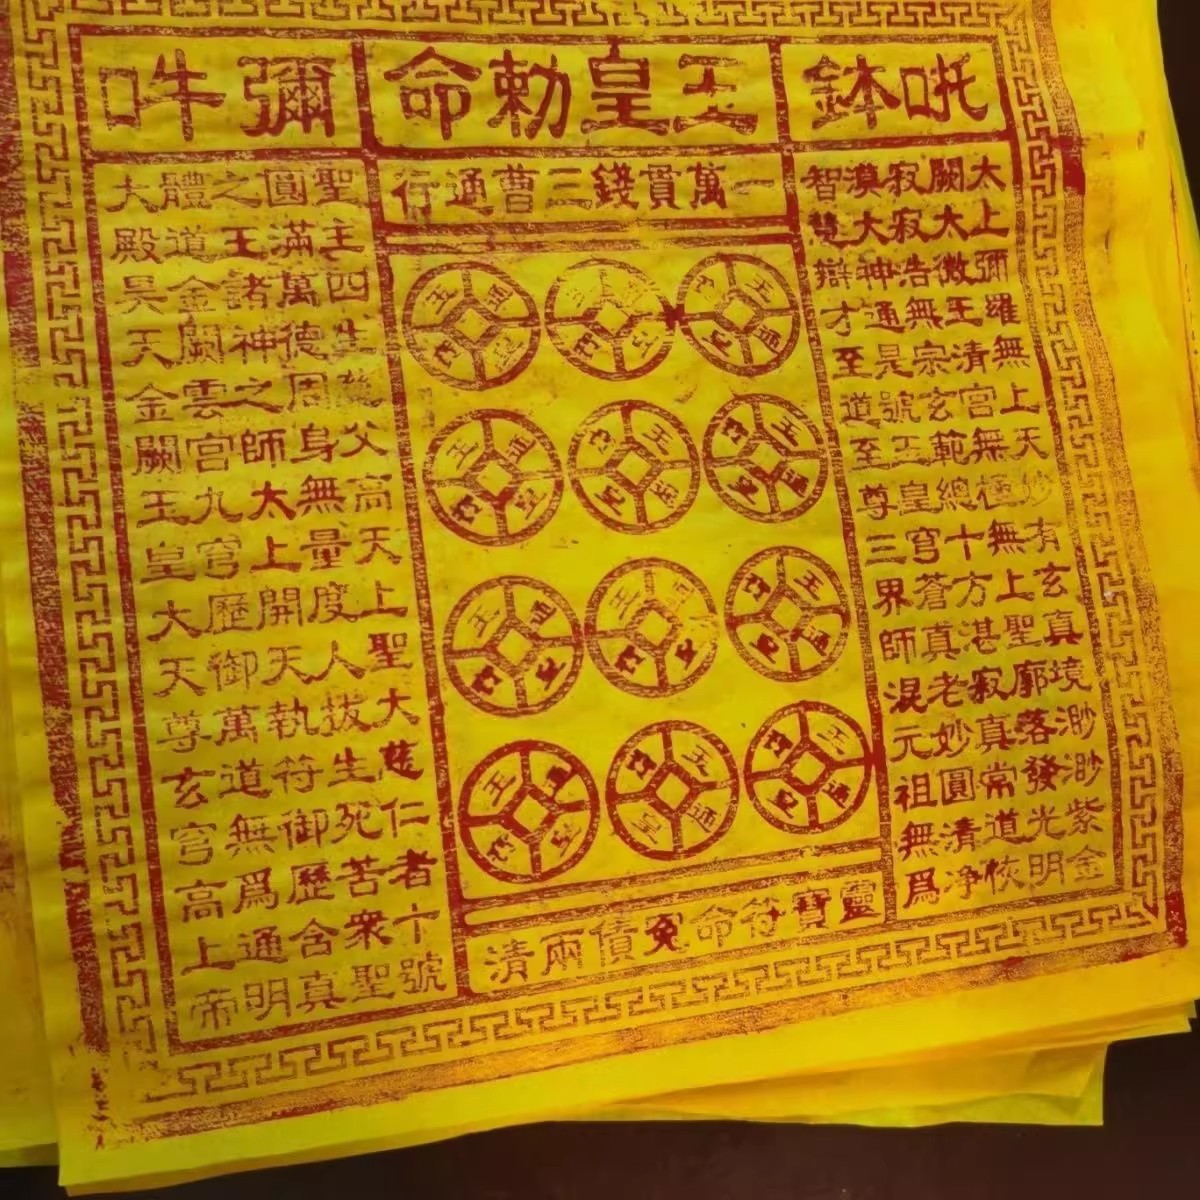 吒鉢
玉皇勅命
彌吽
太上彌羅無上天妙有玄真境渺渺紫金
闕大微玉清宮無極無上聖廓落發光明
寂寂浩無宗玄範總十方湛寂真常道恢
漠大神通是號玉皇穹蒼真老妙圓清净
智慧辯才至道至尊三界師混元祖無爲
一萬貫錢三曹通行
靈寶符命冤債兩清
聖主四生慈父高天上聖大慈仁者十號
圓滿萬德周身無量度人拔生死苦衆聖
之王諸神之師太上開天執符御歷含真
體道金闕雲宮九穹歷御萬道無爲通明
大殿昊天金闕玉皇大天尊玄穹高上帝